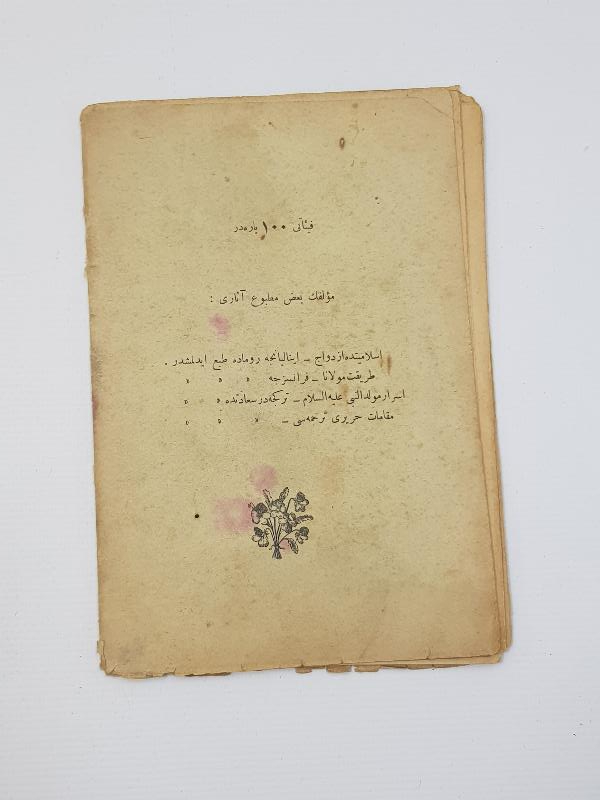 فيئاتی ۱۰۰ پاره‌در
مؤلفك بعض مطبوع آثاری :
إسلاميتده ازدواج ــ ايتاليانجه روماده طبع ايدلمشدر .
طريقت مولانا ــ فرانسزجه » » »
اسرار مولد النبی عليه السلام ــ تركجه درسعادتده » »
مقامات حريری ترجمه‌سی ــ » » »